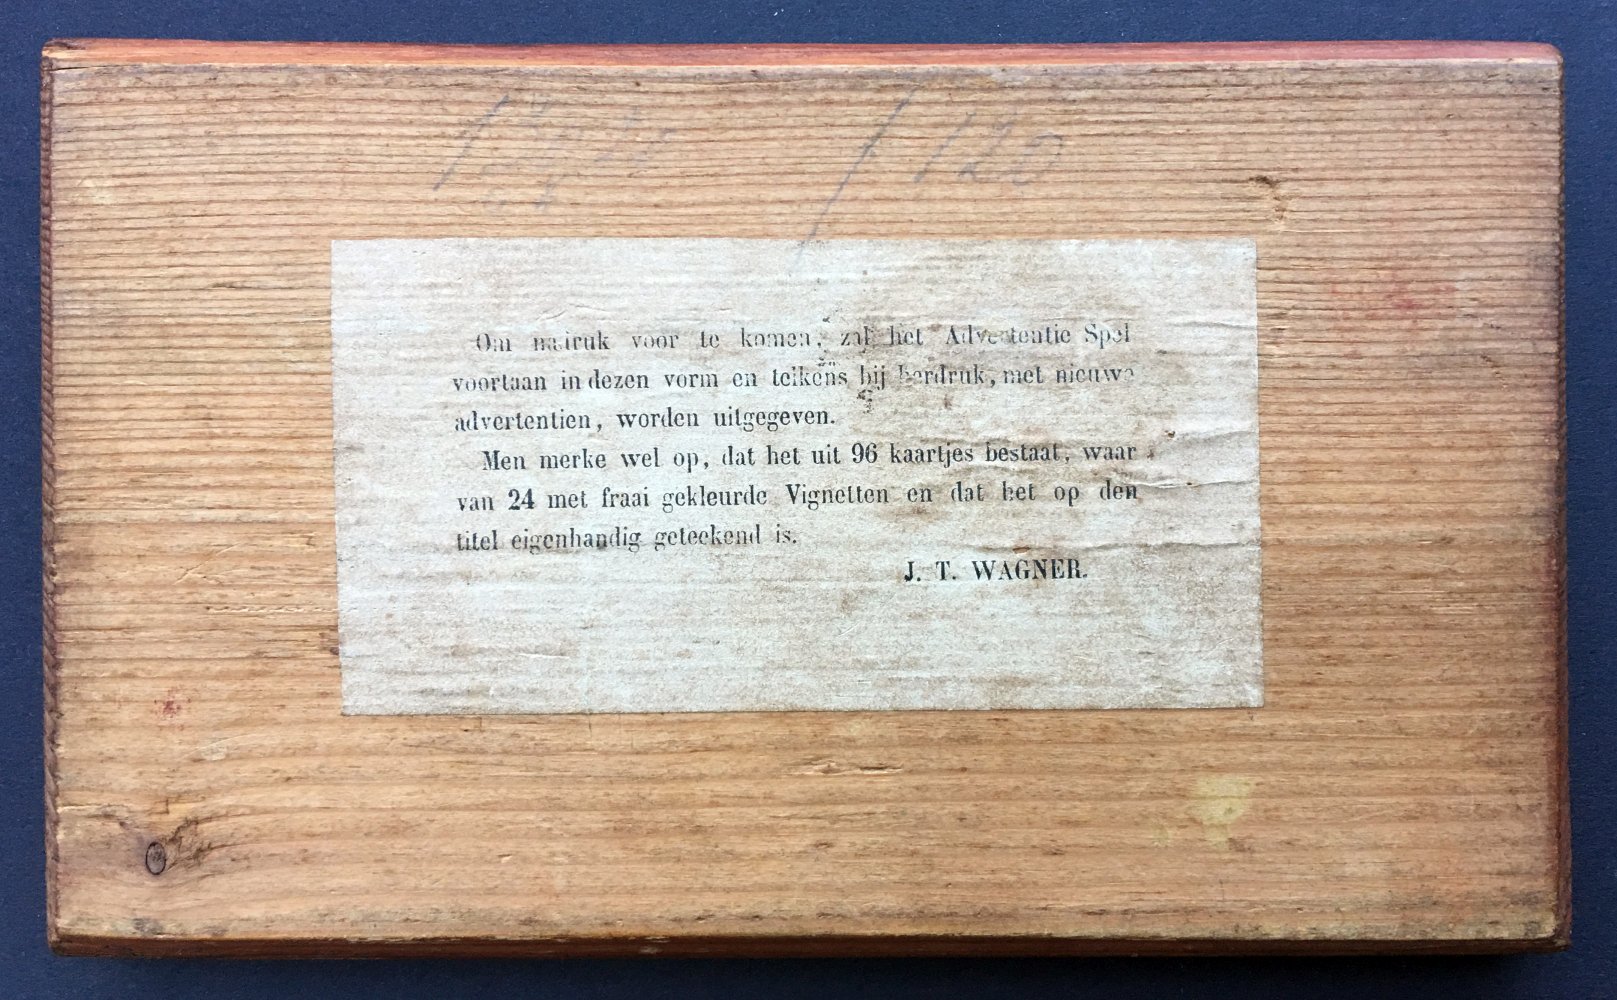 120
Om nadruk voor te komen, zal het Advertentie Spel
voortaan in dezen vorm en telkens bij herdruk, met nieuwe
advertentien, worden uitgegeven.
Men merke wel op, dat het uit 96 kaartjes bestaat, waar
van 24 met fraai gekleurde Vignetten en dat het op den
titel eigenhandig geteekend is.
J. T. WAGNER.